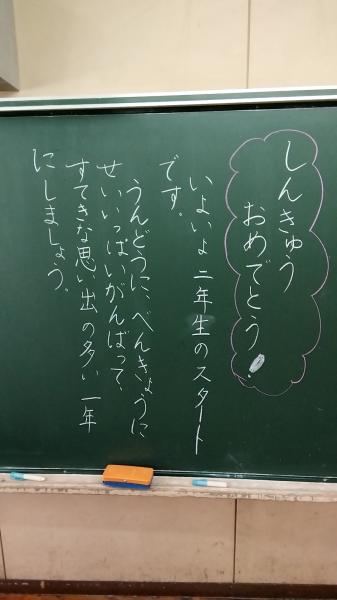 しんきゅう
おめでとう!
いよいよ二年生のスタート
です。
うんどうに、べんきょうに
せいいっぱいがんばって、
すてきな思い出の多い一年
にしましょう。